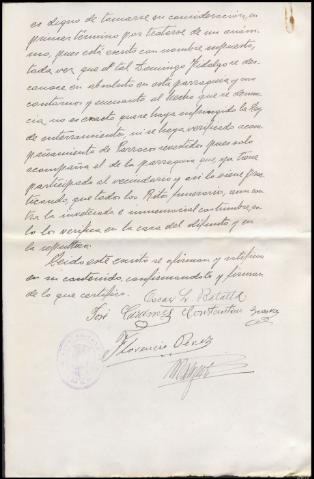 es digno de tomarse en consideración, en
primer término por tratarse de un anóni-
mo, pues está escrito con nombre supuesto,
toda vez que el tal Domingo Hidalgo se des-
conoce en absoluto en esta parroquia y sus
contornos y en cuanto al hecho que se denun-
cia, no es exacto que se haya infringido la ley
de enterramientos, ni se haya verificado acom-
pañamiento de Párroco revestido pues solo
acompaña el de la parroquia que ya tiene
participado el vecindario y así lo viene prac-
ticando, que todos los Ritos funerarios, aun con-
tra la inveterada e inmemorial costumbre, so-
lo los verifica en la casa del difunto y en
la sepultura.
Leído este escrito se afirman y ratifican
en su contenido, confirmándolo y firman
de lo que certifico. Oscar L. Batalla
José Constantino Suarez
Florencio Perez